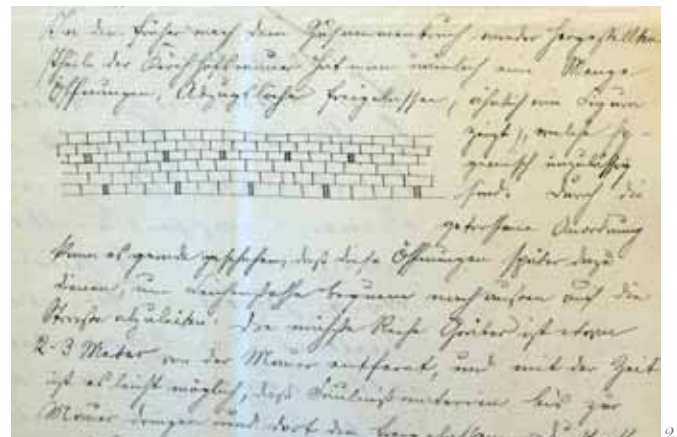 In den früher nach dem Zusammenbruch wieder hergestellten
Theile der Kirchhofmauer hat man nämlich eine Menge
Öffnungen, Abzugslöcher freigelassen, ähnlich wie Figura
zeigt, welche hy-
gienisch unzulässig
sind. Durch die
getroffene Anordnung
kann es gerade geschehen, daß diese Öffnungen später dazu
dienen, um Leichenstoffe bequem nach aussen auf die
Straße abzuleiten. Die nächste Reihe Gräber ist etwa
2-3 Meter von der Mauer entfernt, und mit der Zeit
ist es leicht möglich, daß Fäulnißmaterien bis zur
Mauer dringen und dort den freigelassenen